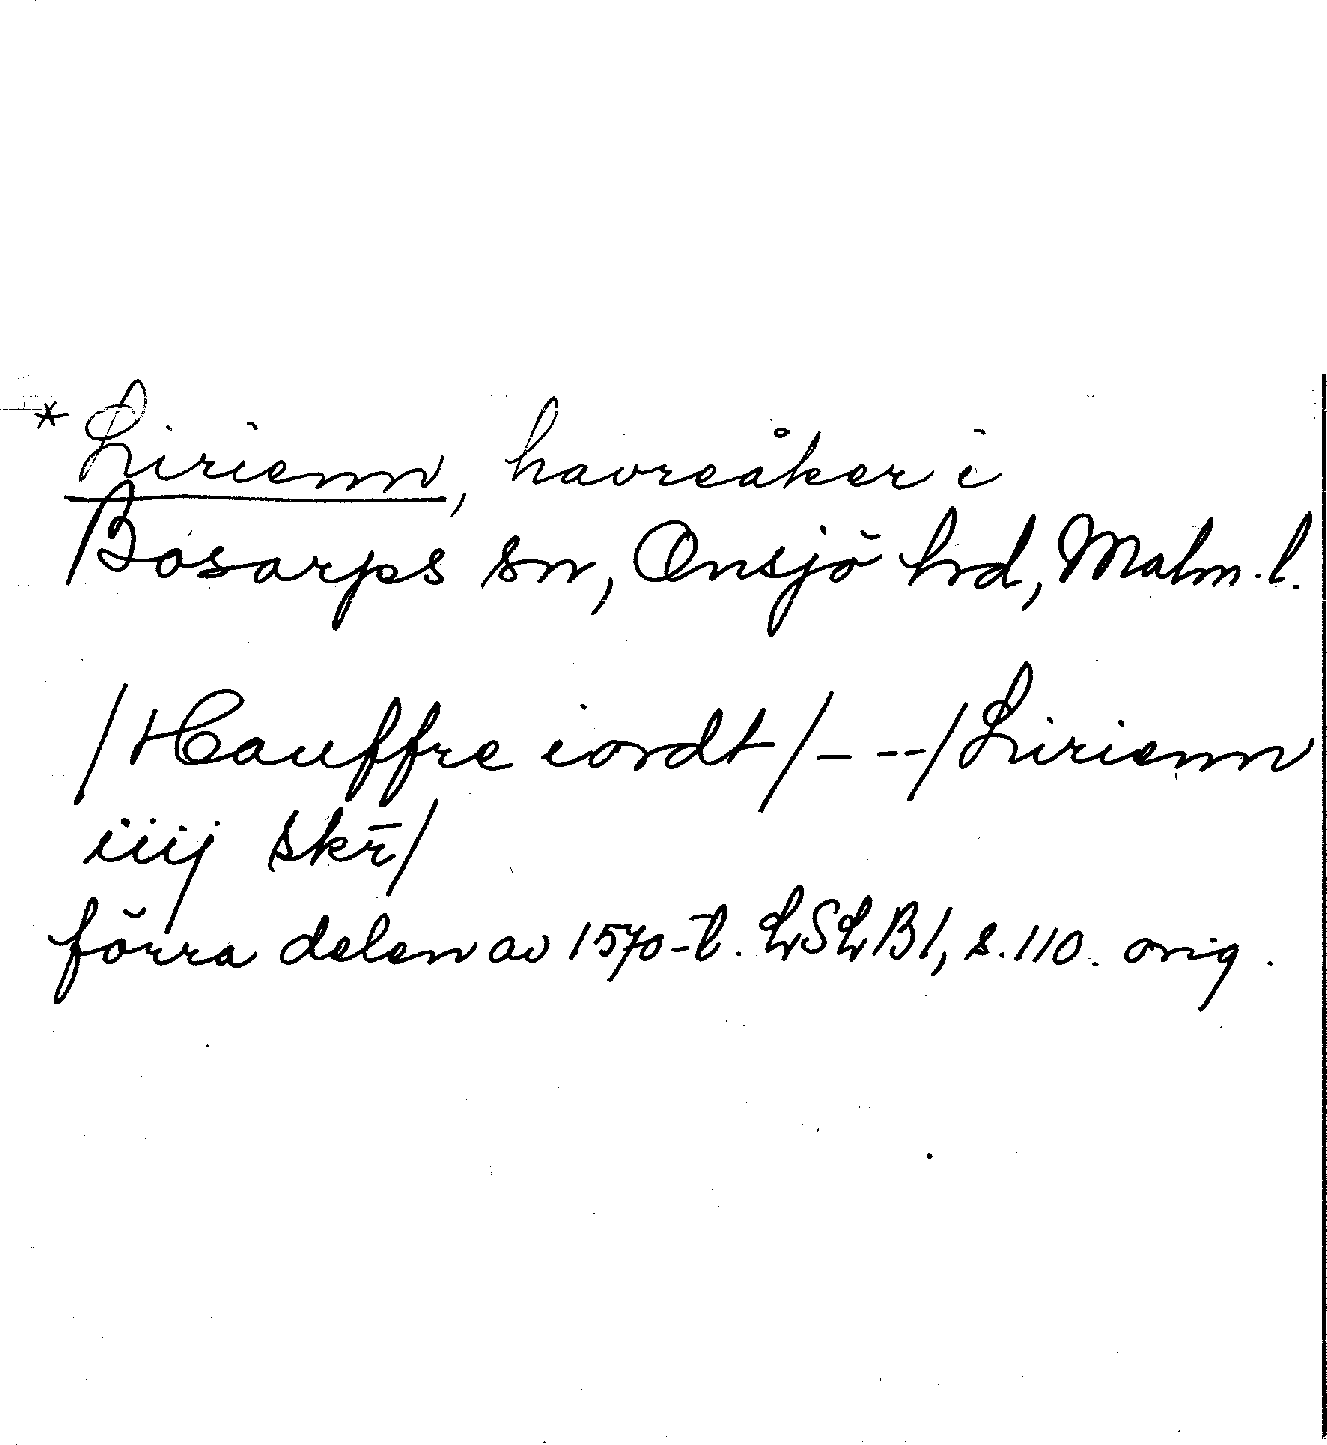 * Lirienn, havreåker i
Bosarps sn, Onsjö hrd, Malm. l.
/Hauffre iordt/_ _ _/Lirienn
iiij skr̄/
förra delen av 1570-t. LSLB1, s. 110. orig.